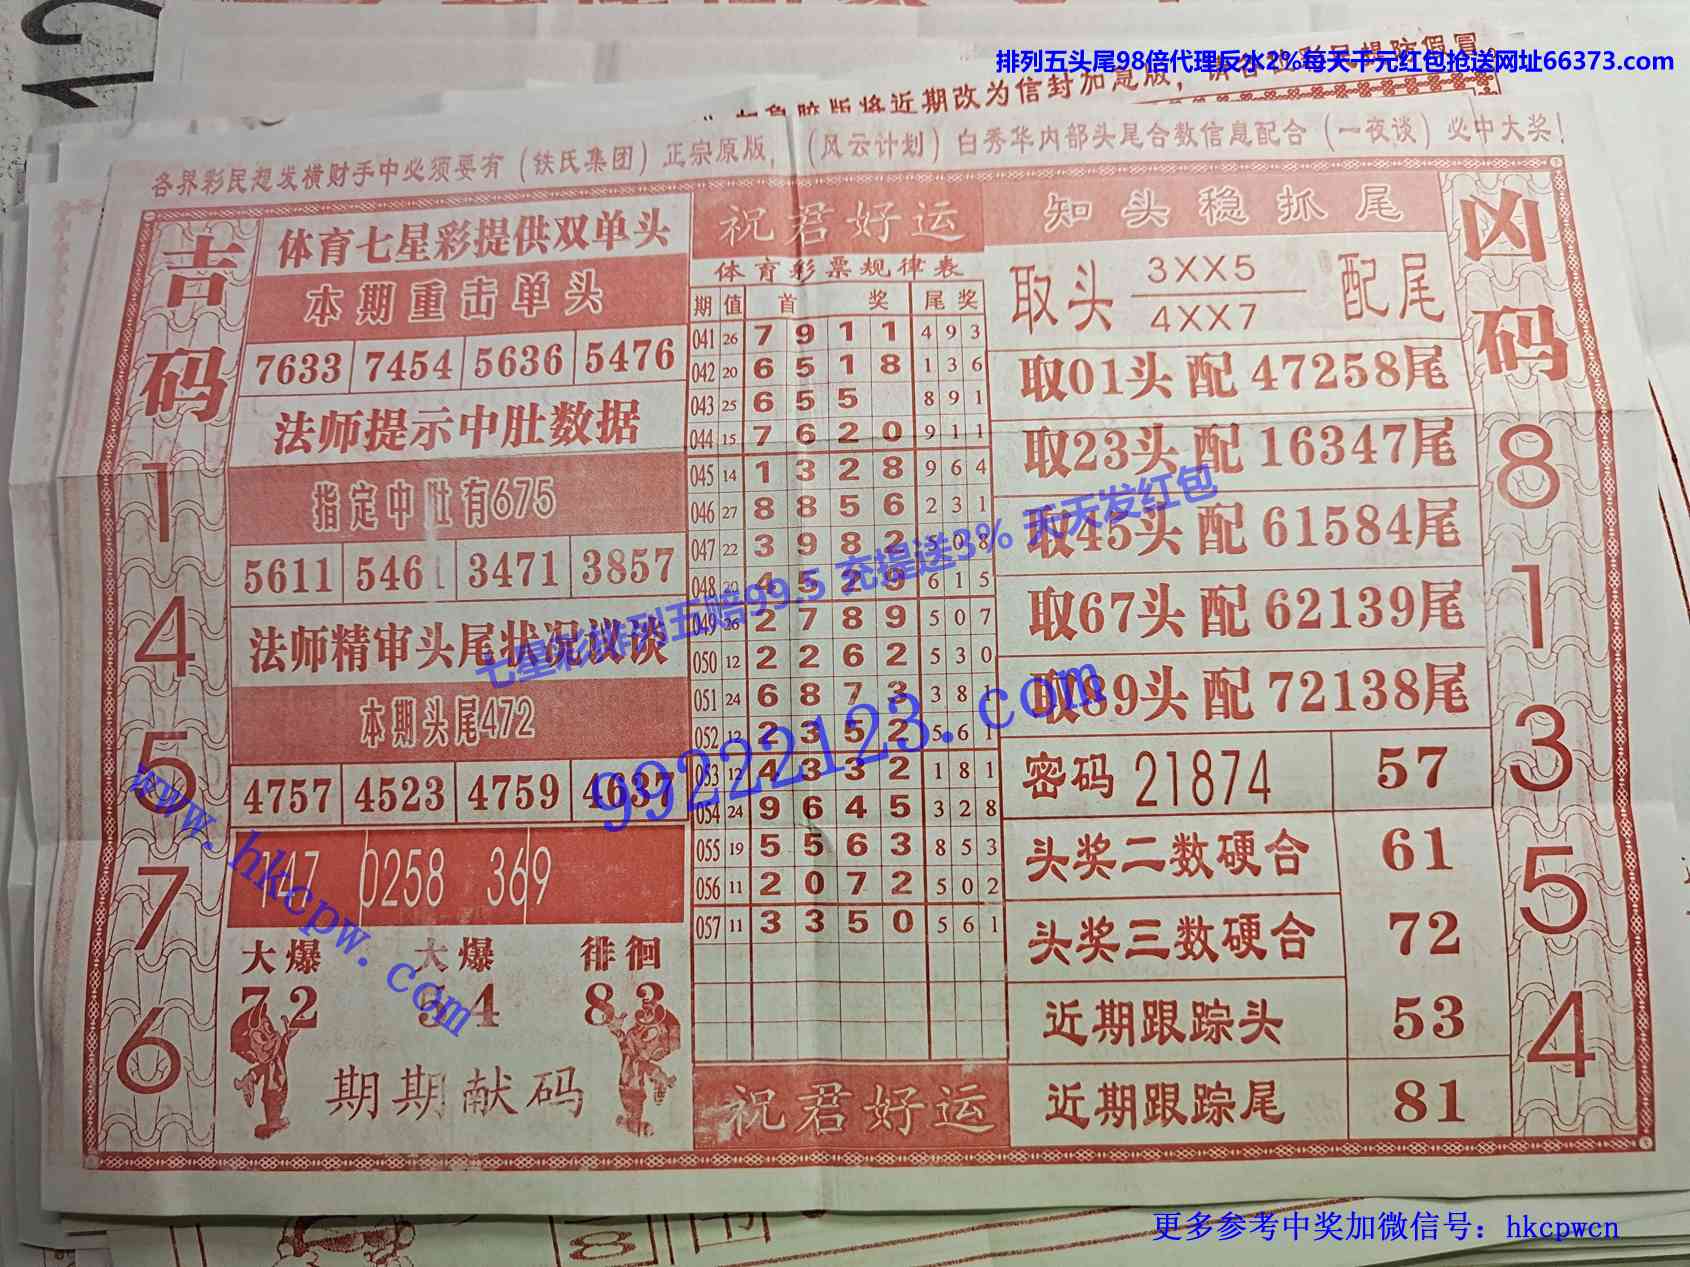 排列五头尾98倍代理反水2%每天千元红包抢送网址66373.com
版将近期改为信封加急版，
各界彩民想发横财手中必须要有（铁氏集团）正宗原版，（风云计划）白秀华内部头尾合数信息配合（一夜谈）必中大奖！
吉码
1
4
5
7
6
体育七星彩提供双单头
本期重击单头
7633 7454 5636 5476
法师提示中肚数据
指定中肚有675
5611 5461 3471 3857
法师精审头尾状况议谈
本期头尾472
4757 4523 4759 4637
147 0258 369
大爆 大爆 徘徊
72 54 83
期期献码
祝君好运
体育彩票规律表
期 值 首 奖 尾 奖
041 26 7 9 1 1 4 9 3
042 20 6 5 1 8 1 3 6
043 25 6 5 5 8 9 1
044 15 7 6 2 0 9 1 1
045 14 1 3 2 8 9 6 4
046 27 8 8 5 6 2 3 1
047 22 3 9 8 2 5 0 8
048 4 5 2 9 6 1 5
049 26 2 7 8 9 5 0 7
050 12 2 2 6 2 5 3 0
051 24 6 8 7 3 3 8
052 12 2 3 5 2 5 6 1
053 12 4 3 3 2 1 8 1
054 24 9 6 4 5 3 2 8
055 19 5 5 6 3 8 5 3
056 11 2 0 7 2 5 0 2
057 11 3 3 5 0 5 6 1
祝君好运
知头稳抓尾
取头 3XX5 配尾
4XX7
取01头 配 47258尾
取23头 配 16347尾
取45头 配 61584尾
取67头 配 62139尾
取89头 配 72138尾
密码 21874 57
头奖二数硬合 61
头奖三数硬合 72
近期跟踪头 53
近期跟踪尾 81
凶码
8
1
3
5
4
七星彩排列五赔99.5 充提送3% 天天发红包
99222123.com
www.hkcpw.com
更多参考中奖加微信号：hkcpwcn